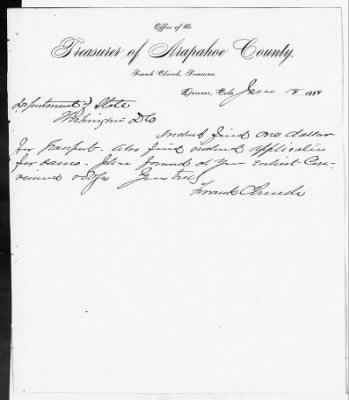 Office of the
Treasurer of Arapahoe County.
Frank Church, Treasurer.
Denver, Colo June 8 1889
Department of State
Washington DC
Inclosed find one dollar
for Passport. Also find inclosed application
for same. Please forward at your earliest Con-
venience
Yours truly
Frank Church